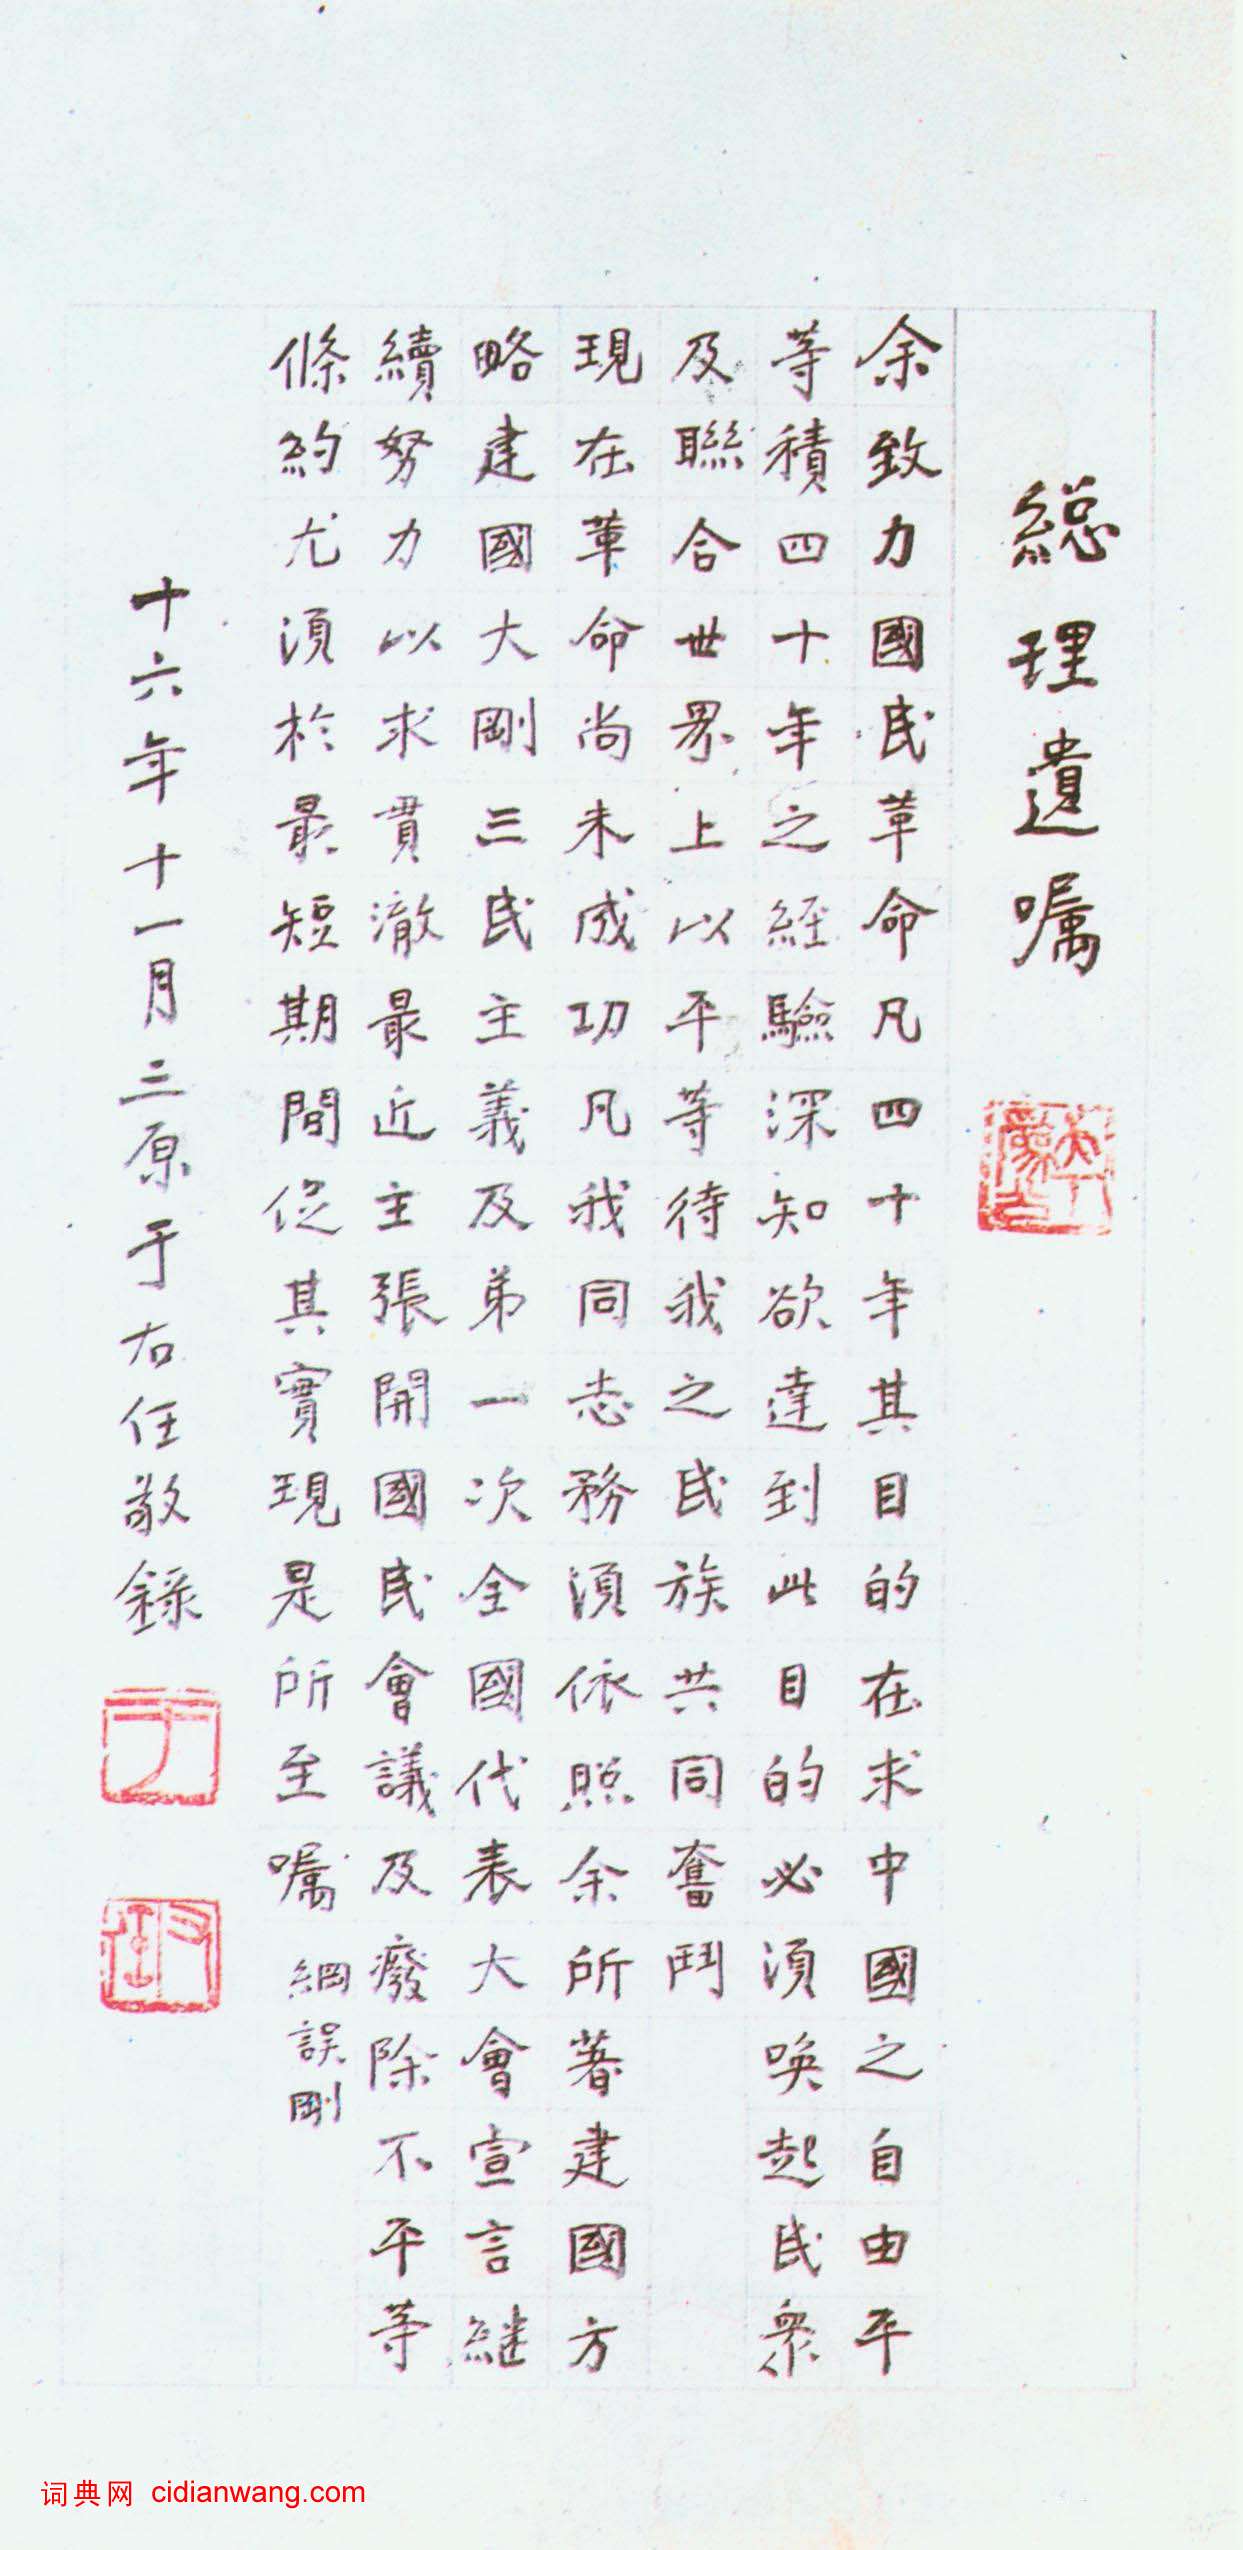 總理遺囑
余致力國民革命凡四十年其目的在求中國之自由平
等積四十年之經驗深知欲達到此目的必須喚起民衆
及聯合世界上以平等待我之民族共同奮鬥
現在革命尚未成功凡我同志務須依照余所著建國方
略建國大剛三民主義及弟一次全國代表大會宣言繼
續努力以求貫澈最近主張開國民會議及廢除不平等
條約尤須於最短期間促其實現是所至囑 綱誤剛
十六年十一月三原于右任敬錄
于
右任
词典网 cidianwang.com